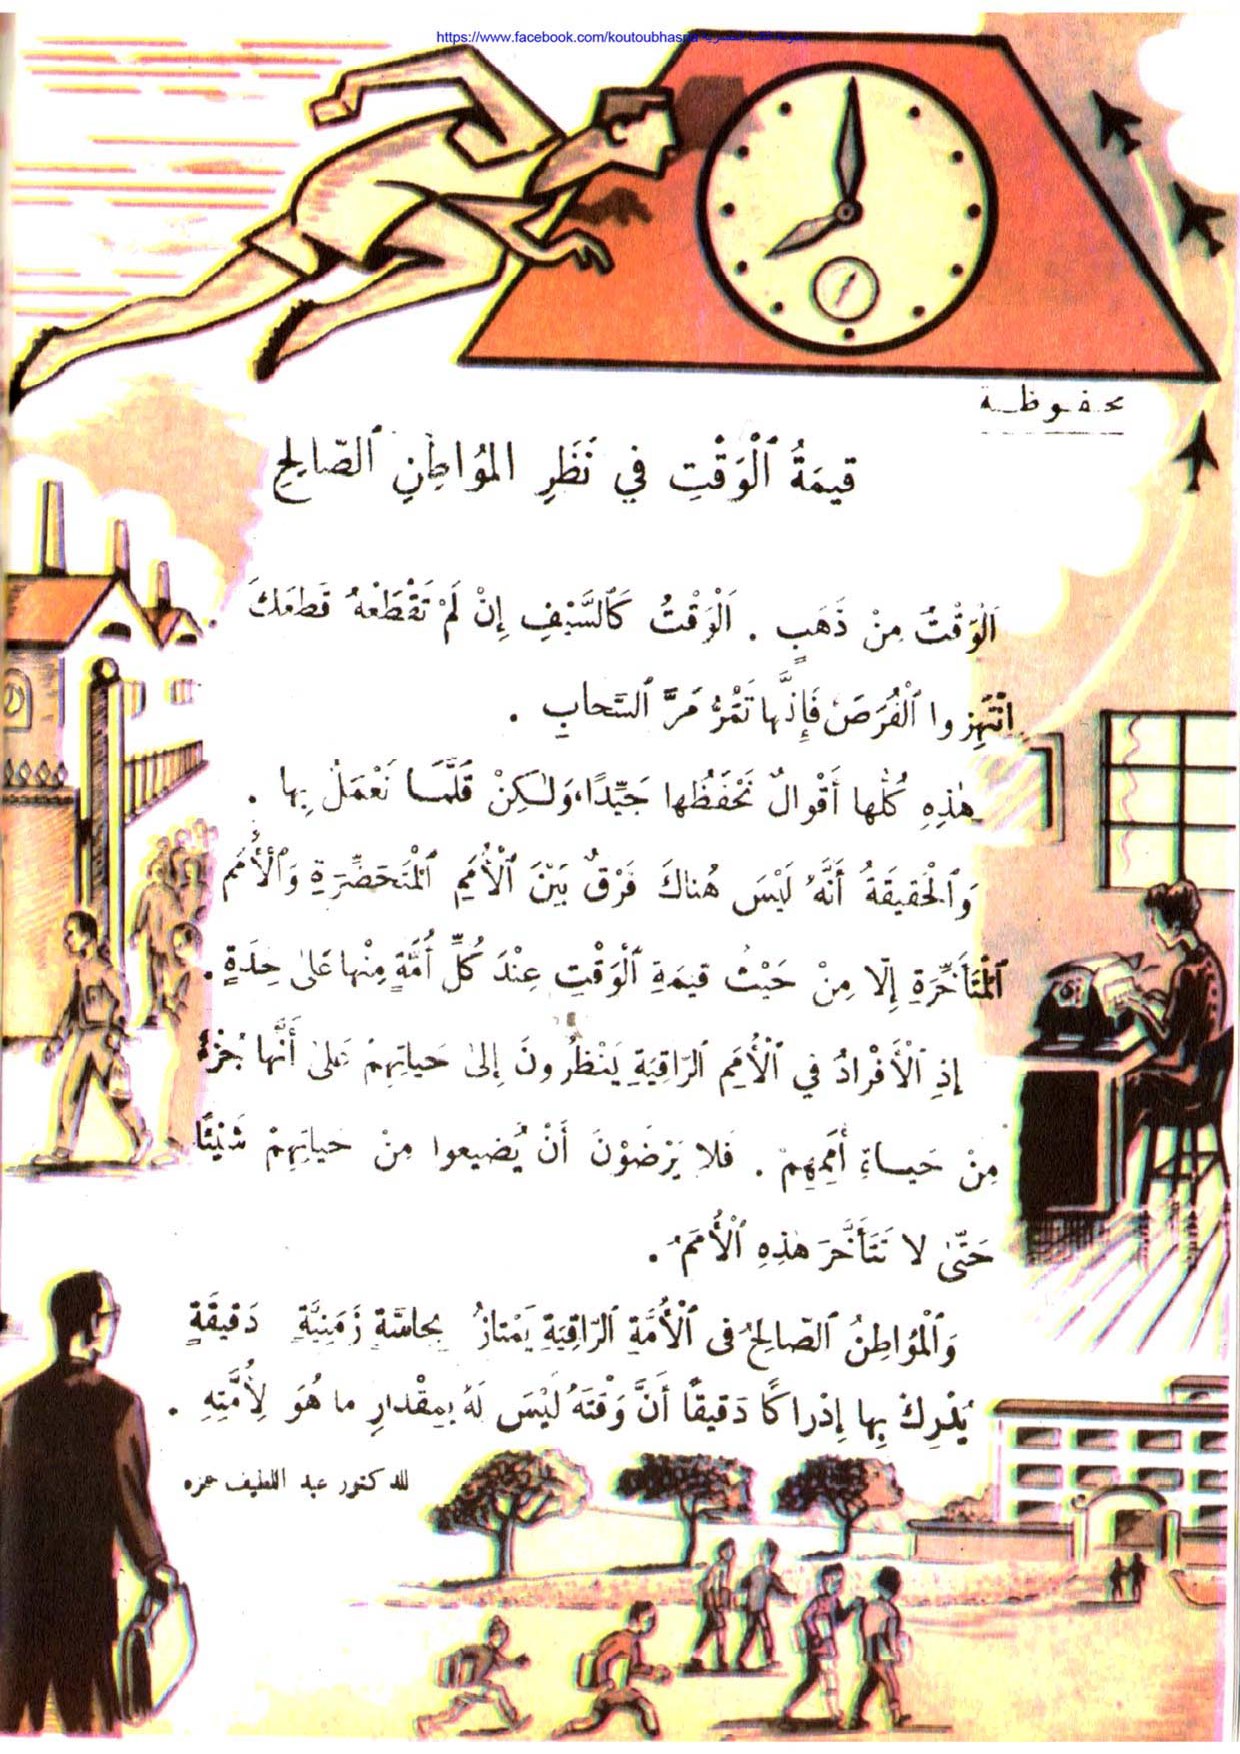 https://www.facebook.com/koutoubhasria
محفوظة
قيمَةُ ٱلْوَقْتِ في نَظَرِ المُوَاطِنِ ٱلصّالِحِ
اَلْوَقْتُ مِنْ ذَهَبٍ . اَلْوَقْتُ كَٱلسَّيْفِ إِنْ لَمْ تَقْطَعْهُ قَطَعَكَ .
اِنْتَهِزوا ٱلْفُرَصَ فَإِنَّها تَمُرُّ مَرَّ ٱلسَّحابِ .
هٰذِهِ كُلُّها أَقْوالٌ نَحْفَظُها جَيِّدًا، وَلٰكِنْ قَلَّمَا نَعْمَلُ بِها .
وَٱلْحَقيقَةُ أَنَّهُ لَيْسَ هُناكَ فَرْقٌ بَيْنَ ٱلْأُمَمِ ٱلْمُتَحَضِّرَةِ وَٱلْأُمَمِ
ٱلْمُتَأَخِّرَةِ إِلّا مِنْ حَيْثُ قيمَةِ ٱلْوَقْتِ عِنْدَ كُلِّ أُمَّةٍ مِنْها عَلىٰ حِدَةٍ .
إِذِ ٱلْأَفْرادُ في ٱلْأُمَمِ ٱلرّاقِيَةِ يَنْظُرُونَ إِلىٰ حَياتِهِمْ عَلىٰ أَنَّها جُزْءٌ
مِنْ حَياةِ أُمَمِهِمْ . فَلا يَرْضَوْنَ أَنْ يُضيعوا مِنْ حَياتِهِمْ شَيْئًا
حَتّىٰ لا تَتَأَخَّرَ هٰذِهِ ٱلْأُمَمُ .
وَٱلْمُوَاطِنُ ٱلصّالِحُ فى ٱلْأُمَّةِ ٱلرّاقِيَةِ يَمْتازُ بِحاسَّةٍ زَمَنِيَّةٍ دَقيقَةٍ
يُدْرِكُ بِها إِدْراكًا دَقيقًا أَنَّ وَقْتَهُ لَيْسَ لَهُ بِمِقْدارِ ما هُوَ لِأُمَّتِهِ .
للدكتور عبد اللطيف حمزه